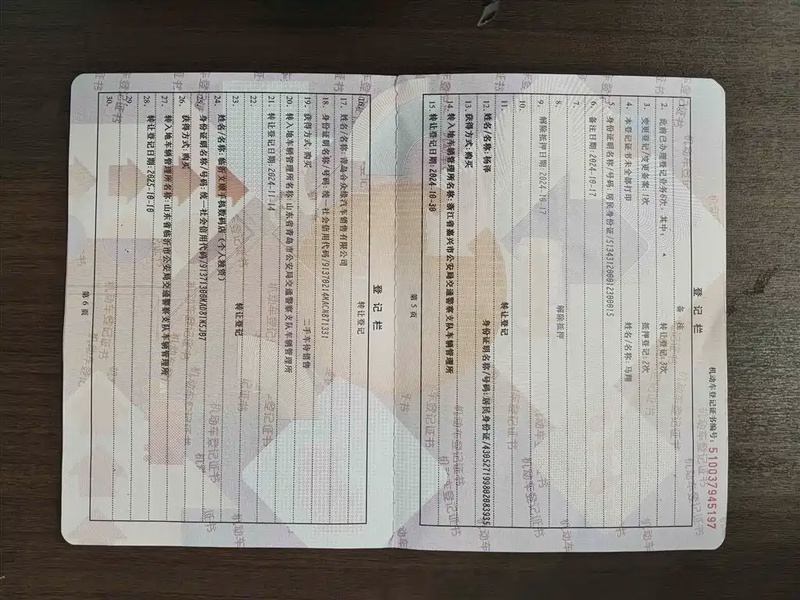 机动车登记证书编号: 510037945197
登 记 栏
备 注
2. 此前已办理登记业务6次, 其中: 转让登记:3次
3. 变更登记/变更备案:1次 抵押登记:2次
4. 本登记证书未全部打印
5. 身份证明名称/号码:居民身份证/513431200012300015 姓名/名称: 马翔
6. 备注日期:2024-10-17
7.
8. 解除抵押
9. 解除抵押日期:2024-10-17
10.
11. 转让登记
12. 姓名/名称:杨泽 身份证明名称/号码:居民身份证/430527199802083935
13. 获得方式:购买
14. 转入地车辆管理所名称:浙江省嘉兴市公安局交通警察支队车辆管理所
15. 转让登记日期:2024-10-30
第 5 页
登 记 栏
转让登记
17. 姓名/名称:青岛合众缘汽车销售有限公司
18. 身份证明名称/号码:统一社会信用代码/91370214MACN871331
19. 获得方式:购买 二手车待销售
20. 转入地车辆管理所名称:山东省青岛市公安局交通警察支队车辆管理所
21. 转让登记日期:2024-11-14
22.
23. 转让登记
24. 姓名/名称:临沂艾维手机数码店(个人独资)
25. 身份证明名称/号码:统一社会信用代码/91371300MAD81M5JB7
26. 获得方式:购买
27. 转入地车辆管理所名称:山东省临沂市公安局交通警察支队车辆管理所
28. 转让登记日期:2025-10-10
29.
30.
第 6 页